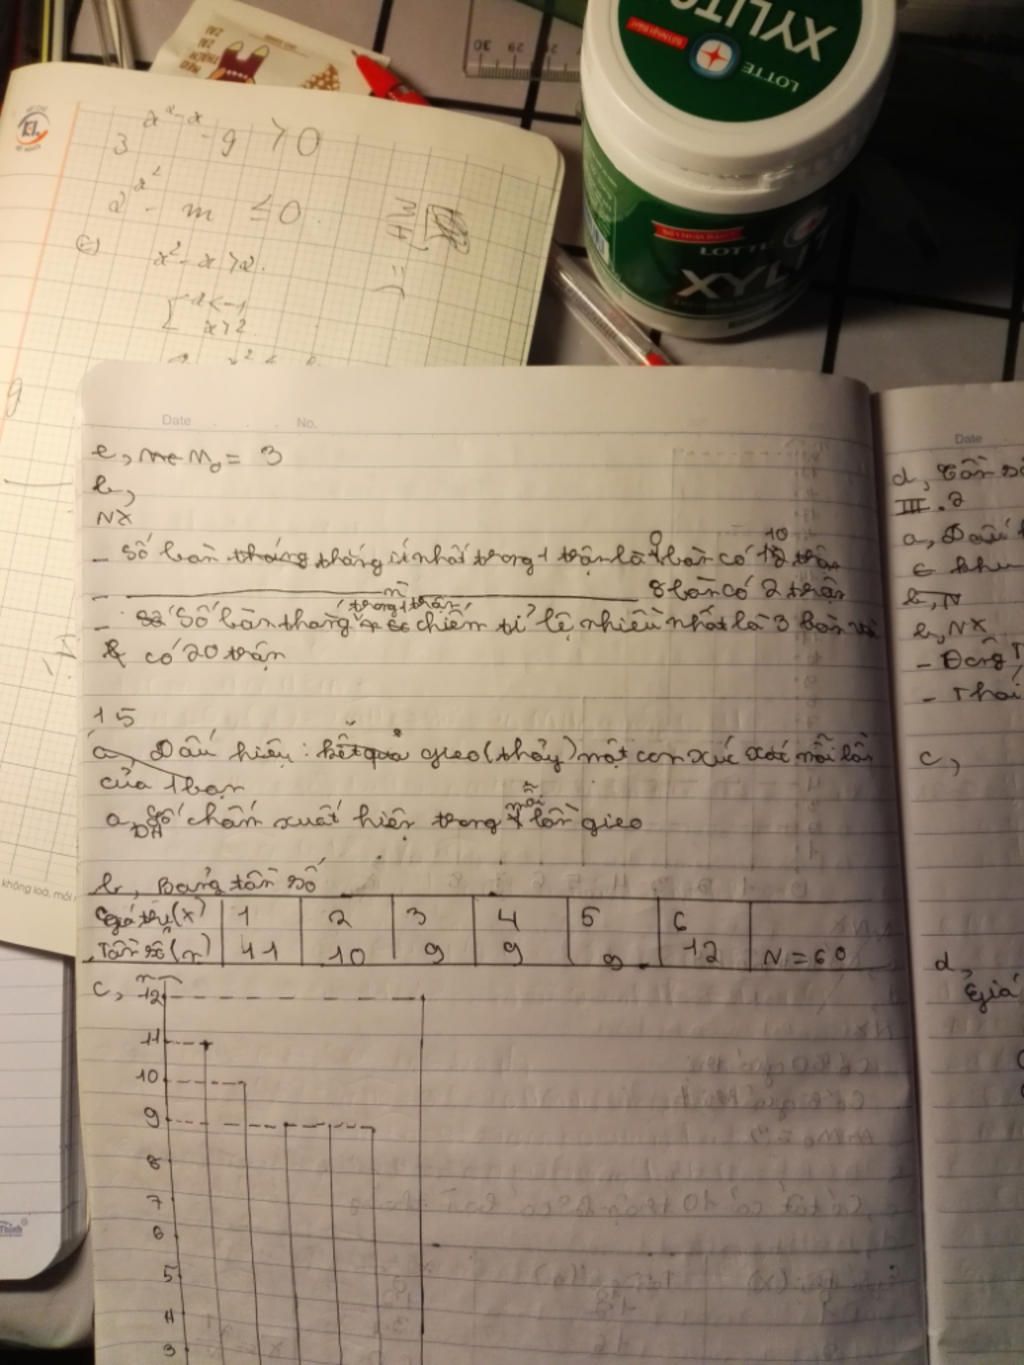 30 29 28 27
LOTTE
XYLITO
LOTTE
XYLIT
3^x²-x - 9 > 0
2^x² - m ≤ 0
x² - x > 2.
x < -1
x > 2
Date No.
e, M₀ = 3
b,
NX
- Số bàn thắng ít nhất trong 1 trận là 0 bàn có 10 trận
- n 8 bàn có 2 trận
- Số bàn thắng trong 1 trận chiếm tỉ lệ nhiều nhất là 3 bàn và
có 20 trận
15
a, Dấu hiệu: kết quả gieo (thảy) một con xúc xắc mỗi lần
của 1 bạn
a, DH Số chấm xuất hiện trong mỗi lần gieo
b, Bảng tần số
Giá trị (x) 1 2 3 4 5 6
Tần số (n) 11 10 9 9 9 12 N = 60
c, n
12
11
10
9
8
7
6
5
4
3
Date
d, Tần số
III.2
a, Dấu
b, N
b, NX
- Đong
- Thái
c,
d,
Giá